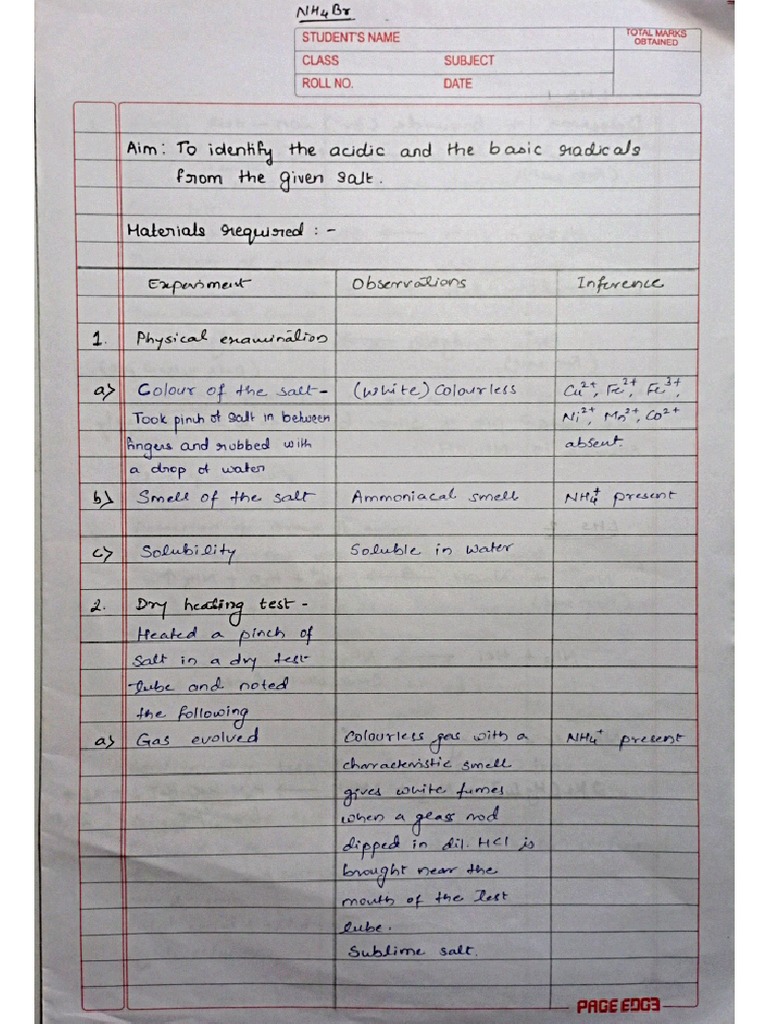 NH4Br
STUDENT'S NAME
TOTAL MARKS OBTAINED
CLASS SUBJECT
ROLL NO. DATE
Aim: To identify the acidic and the basic radicals
from the given salt.
Materials required : -
Experiment Observations Inference
1. Physical examination
a) Colour of the salt- (White) Colourless Cu2+, Fe2+, Fe3+,
Took pinch of salt in between Ni2+, Mn2+, Co2+
fingers and rubbed with absent.
a drop of water
b) Smell of the salt Ammoniacal smell NH4+ present
c) Solubility Soluble in water
2. Dry heating test -
Heated a pinch of
salt in a dry test
tube and noted
the following
a) Gas evolved Colourless gas with a NH4+ present
characteristic smell
gives white fumes
when a glass rod
dipped in dil. HCl is
brought near the
mouth of the test
tube.
Sublime salt.
PAGE EDGE